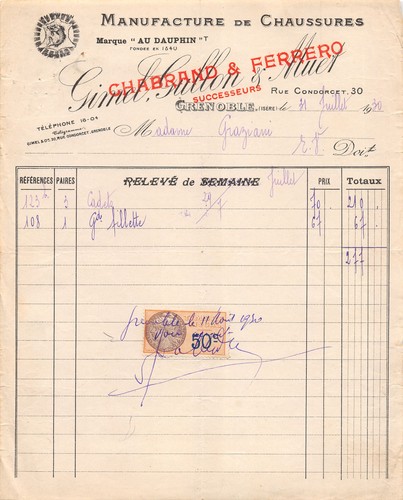 MANUFACTURE DE CHAUSSURES
Marque "AU DAUPHIN"
FONDÉE EN 1840
Gimel, Gullon &
CHABRAND & FERRERO
SUCCESSEURS
RUE CONDORCET, 30
GRENOBLE, (ISÈRE) le 31 Juillet 1930
TÉLÉPHONE 16-04
Télégrammes:
GIMEL & Cie, 30, RUE CONDORCET, GRENOBLE
Madame Graziani
E.V. Doit
RÉFÉRENCES PAIRES RELEVÉ de SEMAINE Juillet PRIX Totaux
123 3 Cadets 29/7 70 210
108 1 Gde fillette 67 67
277
Grenoble le 11 Août 1930
50c